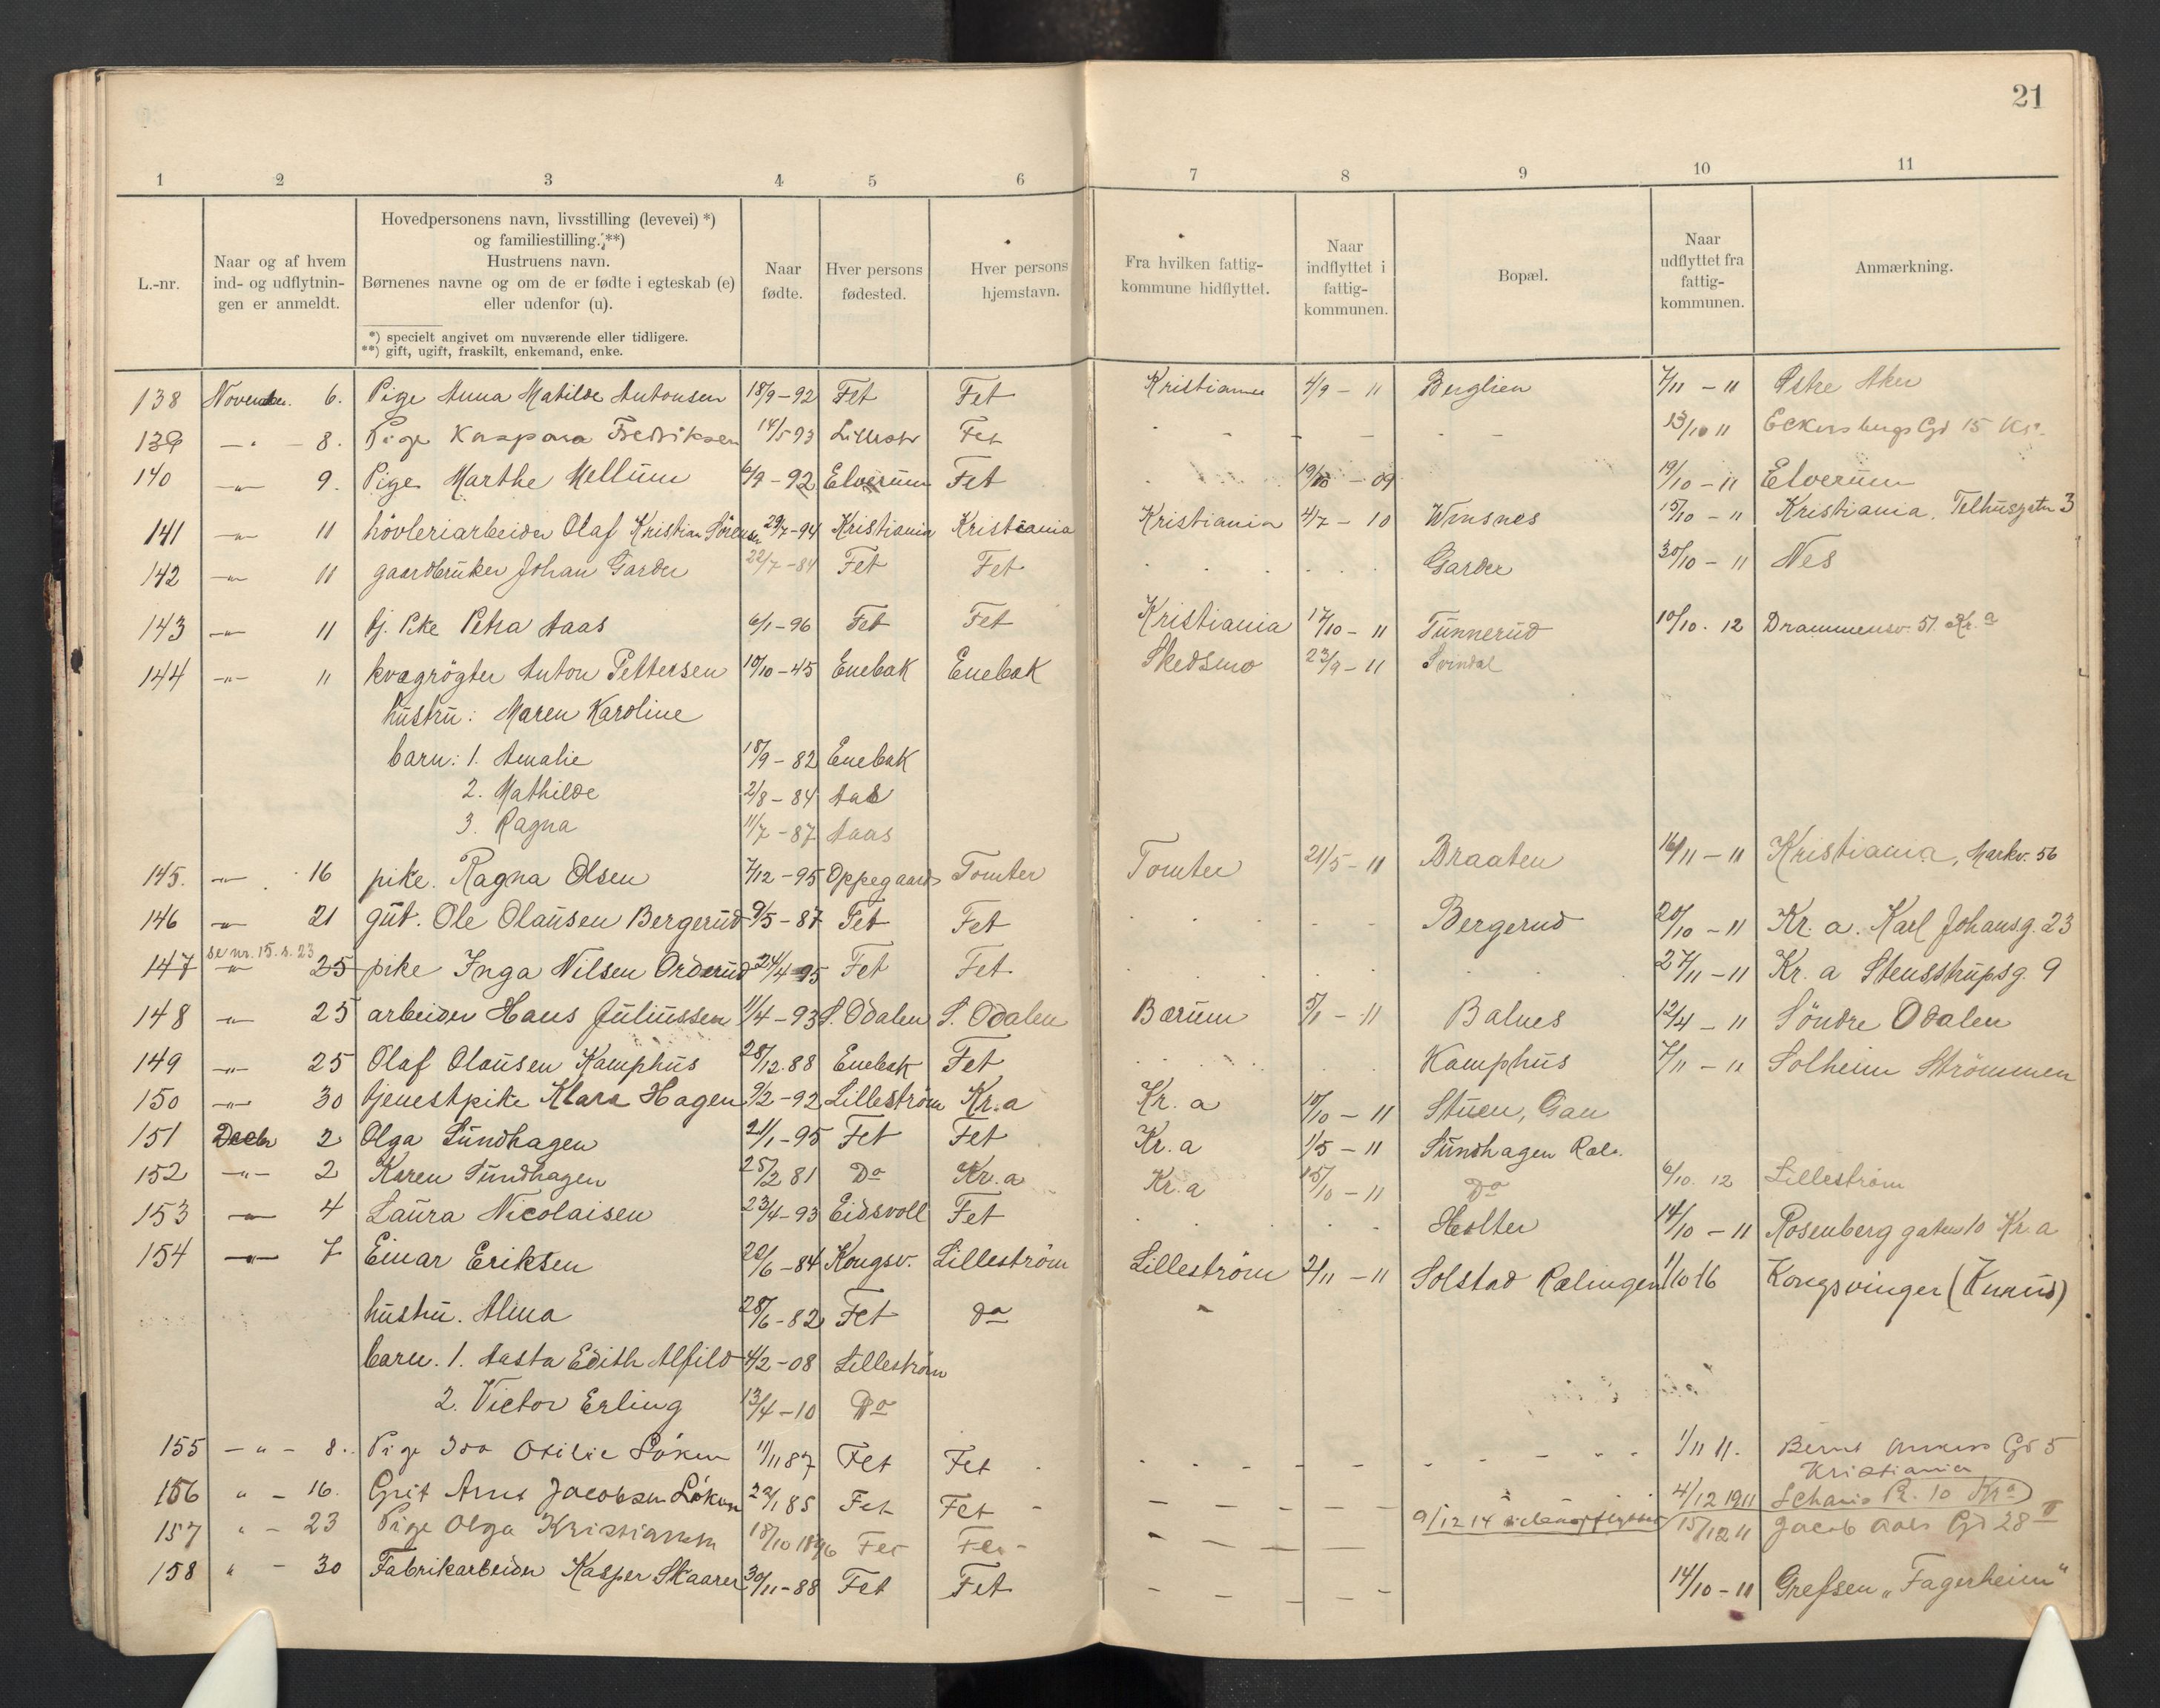 21
1 2 3 4 5 6 7 8 9 10 11
L.-nr.
Naar og af hvem
ind- og udflytnin-
gen er anmeldt.
Hovedpersonens navn, livsstilling (levevei) *)
og familiestilling. **)
Hustruens navn.
Børnenes navne og om de er fødte i egteskab (e)
eller udenfor (u).
*) specielt angivet om nuværende eller tidligere.
**) gift, ugift, fraskilt, enkemand, enke.
Naar
fødte.
Hver persons
fødested.
Hver persons
hjemstavn.
Fra hvilken fattig-
kommune hidflyttet.
Naar
indflyttet i
fattig-
kommunen.
Bopæl.
Naar
udflyttet fra
fattig-
kommunen.
Anmærkning.
138 November. 6. Pige Anna Matilde Antonsen 18/9-92 Fet Fet Kristiania 4/9 - 11 Berglien 7/11 - 11 Østre Aker
139 - " - 8. Pige Kaspara Fredriksen 14/5 93 Lillestr Fet 13/10 11 Eckersbergs Gd 15 Kra.
140 - " - 9. Pige Marthe Mellum 6/9-92 Elverum Fet 19/10 - 09 19/10 - 11 Elverum
141 - " - 11 hövleriarbeider Olaf Kristian Sörensen 29/7-94 Kristiania Kristiania Kristiania 4/7 - 10 Winsnes 15/10 - 11 Kristiania, Telhusgatn 3
142 - " - 11 gaardbruker Johan Garder 22/7-84 Fet Fet Garder 30/10 - 11 Nes
143 - " - 11 tj. Pike Petra Aaas 6/1-96 Fet Fet Kristiania 17/10 - 11 Tunnerud 10/10. 12 Drammensv. 51. Kr.a
144 - " - 11 kvægrögter Anton Pettersen 10/10-45 Enebak Enebak Skedsmo 23/9-11 Svindal
hustru: Maren Karoline
barn: 1. Amalie 18/9-82 Enebak
2. Mathilde 2/8-84 Aas
3. Ragna 11/7-87 Aaas
145. - " - 16 pike. Ragna Olsen 7/12-95 Oppegaard Tomter Tomter 21/5-11 Braaten 16/11-11 Kristiania, Markv. 56
146 - " - 21 gut. Ole Olausen Bergerud 9/5-87 Fet Fet Bergerud 20/10-11 Kr. a. Karl Johansg. 23
se nr. 15. s. 23
147 - " - 25 pike Inga Nilsen Orderud 24/4-95 Fet Fet 27/11-11 Kr. a Stensstrupsg. 9
148 - " - 25 arbeider Hans Juliussen 1/4-93 S. Odalen S. Odalen Bærum 5/1-11 Balnes 12/4-11 Söndre Odalen
149 - " - 25 Olaf Olausen Kamphus 28/12.88 Enebak Fet Kamphus 7/11-11 Solheim Strömmen
150 - " - 30 tjenestpike Klara Hagen 9/2-92 Lilleström Kr.a Kr. a 10/10-11 Stuen, Gan
151 Decbr 2 Olga Sundhagen 21/1-95 Fet Fet Kr. a 1/5-11 Sundhagen Ræl.
152 - " - 2 Karen Sundhagen 25/2 81 Do Kr. a Kr. a 15/10-11 Do 6/10. 12 Lilleström
153 - " - 4 Laura Nicolaisen 23/4-93 Eidsvoll Fet Holter 14/10-11 Rosenberg gaten 10 Kr. a
154 - " - 7 Einar Eriksen 20/6-84 Kongsv. Lilleström Lilleström 2/11-11 Solstad Rælingen 1/10 16 Kongsvinger
hustru. Alma 28/6-82 Fet do
barn. 1. Aasta Edith Alfild 4/2-08 Lilleström
2. Victor Erling 13/4-10 Do
155 - " - 8. Pige Ida Otilie Löken 11/11 87 Fet Fet 1/11 11. Bernt Ankers Gd 5
Kristiania
156 " - 16. Grit Arne Jacobsen Löken 22/1 85 Fet Fet 4/12 1911 10 Kra
9/12 14
157 " - 23 Pige Olga Kristiansen 18/10 1896 Fet Fet 15/12 11 Jacob Aals Gd 28 II
158 " - 30 Fabrikarbeider Kasper Skaarer 30/11-88 Fet Fet 14/10-11 Grefsen "Fagerheim"